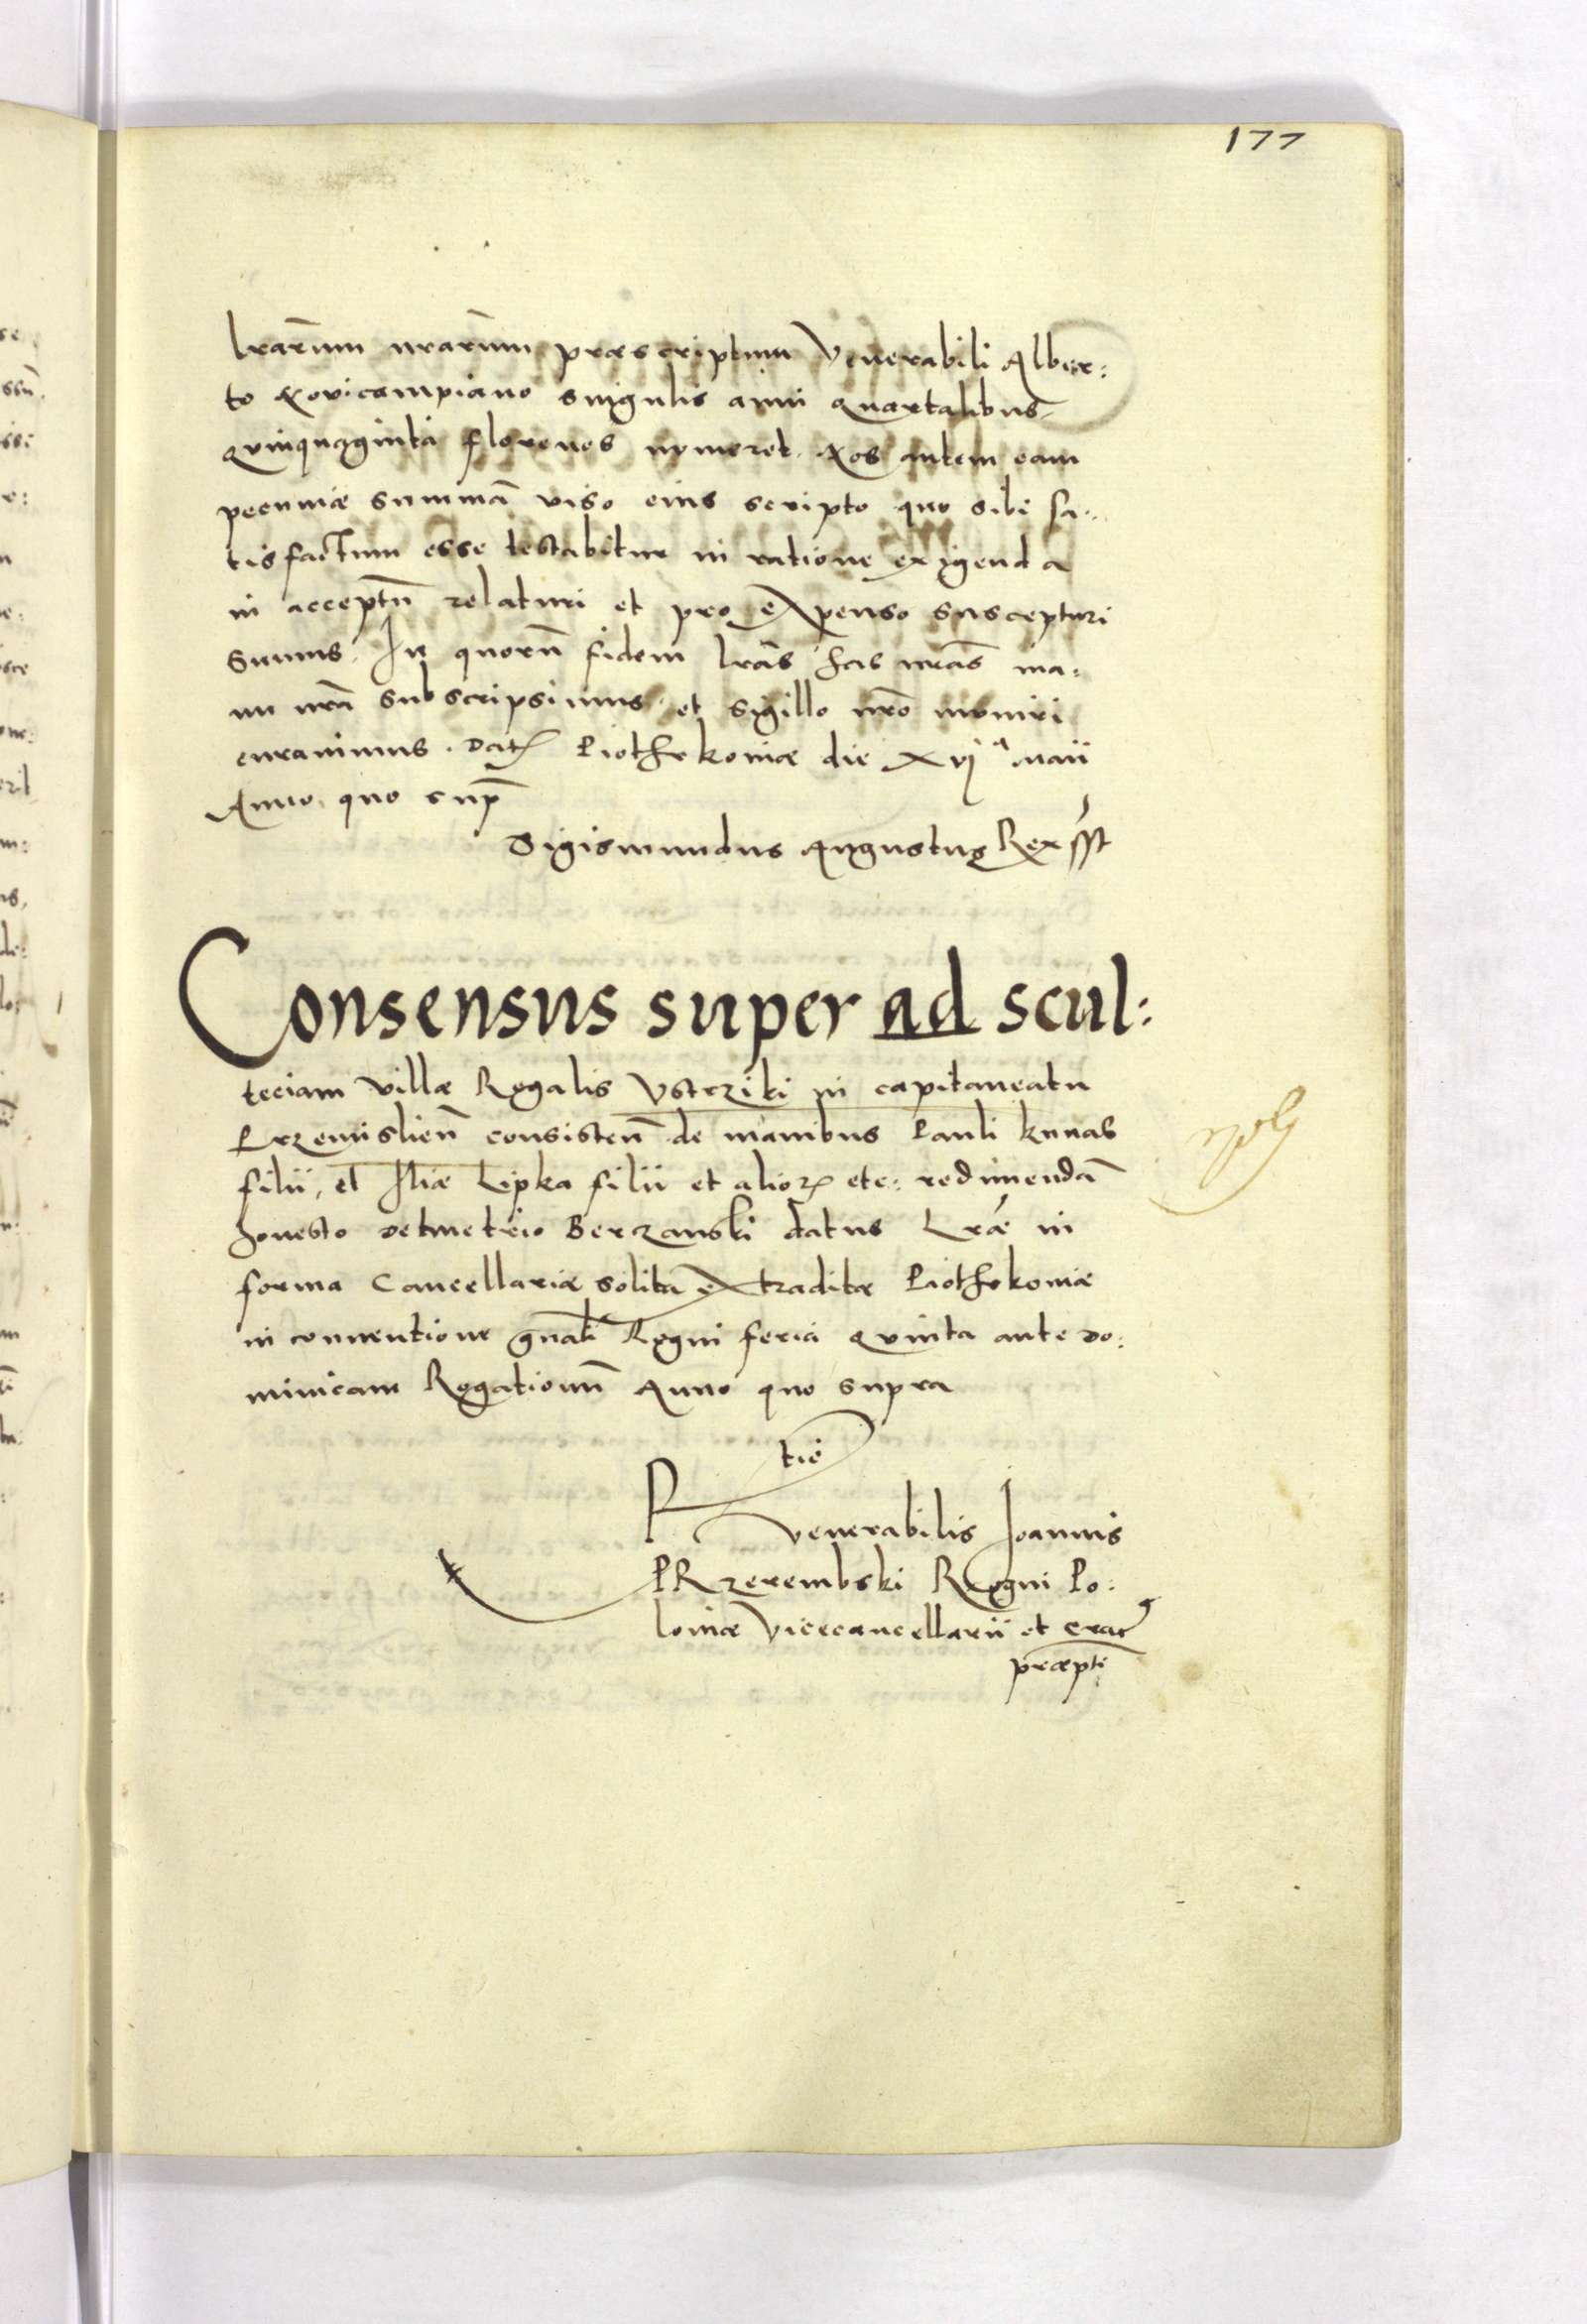 177
lrarum nrarum praescriptum Venerabili Alber:
to Novicampiano singulis anni quartalibus
quinquaginta florenos numeret. Nos autem eam
pecuniae summā viso eius scripto quo sibi sa:
tisfactum esse testabitur in ratione exigenda
in acceptū relaturi et pro expenso suscepturi
sumus. In quorū fidem lrās has nrās ma:
nu nrā subscripsimus et sigillo nrō muniri
curavimus. Dat Piothrkoviae die xvj a Maii
Anno quo sup
Sigismundus Augustus Rex sst
Consensus super ad scul:
teciam villae Regalis Ustrziki in capitaneatu
Przemislień consisteñ de manibus Pauli Kunas
filii, et Iliae Lipka filii et alior etc: redimendā
honesto Demetrio Berzanski datus Lrae in
forma Cancellariae solita extraditae Piothrkoviae
in conventione gnali Regni feria quinta ante do:
minicam Rogationū Anno quo supra
R tio
Venerabilis Joannis
PRzerembski Regni Po:
loniae Vicecancellarii et Crac
praepti